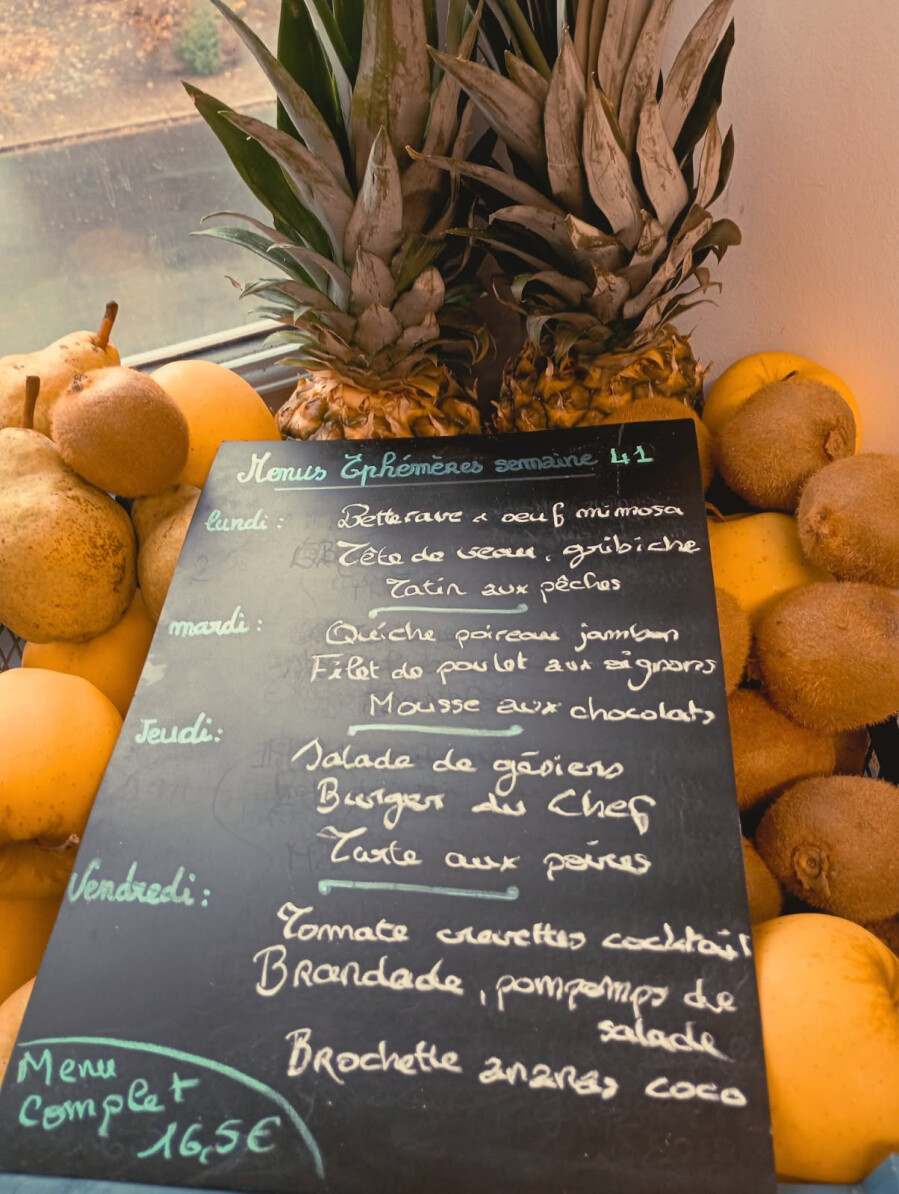 Menus Ephémères semaine 41
lundi : Betterave & oeuf mimosa
Tête de veau, gribiche
Tatin aux pêches
mardi : Quiche poireau jambon
Filet de poulet aux oignons
Mousse aux chocolats
Jeudi : Salade de gésiers
Burger du Chef
Tarte aux poires
Vendredi : Tomate crevettes cocktail
Brandade, pompomps de
salade
Brochette ananas coco
Menu
Complet
16,5€